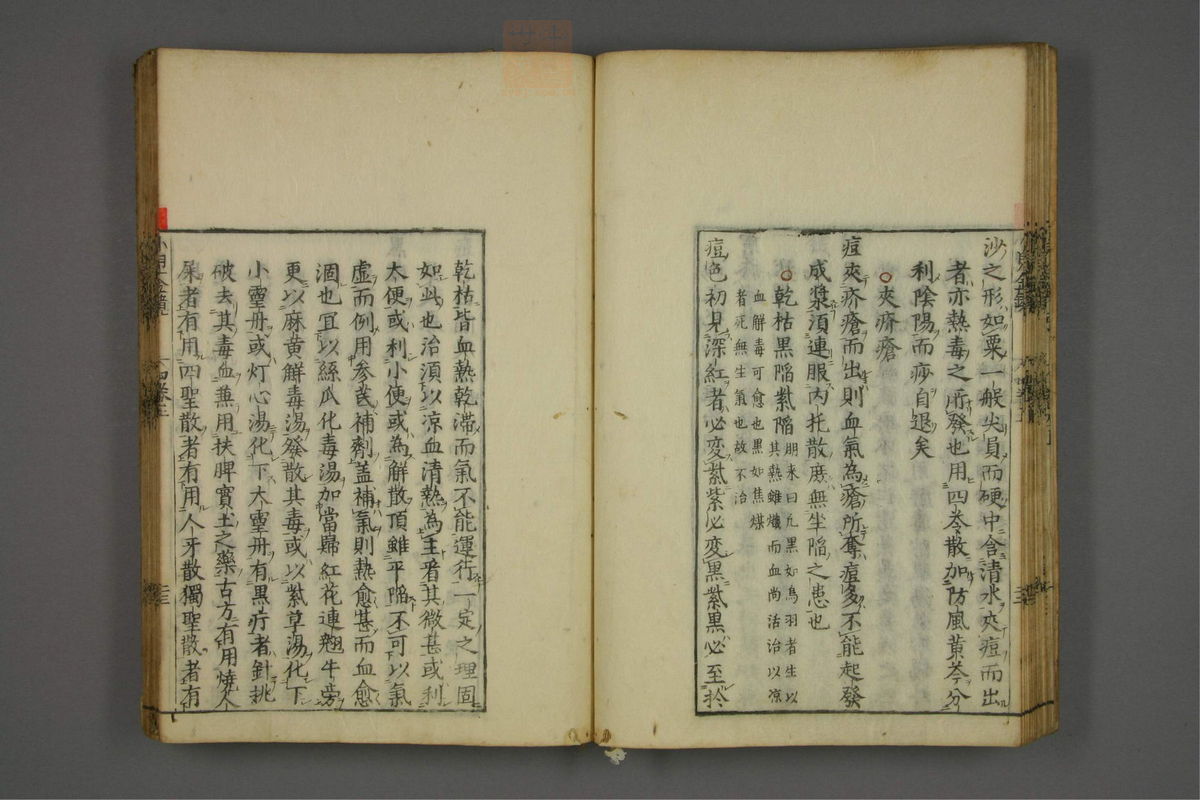 沙之形如粟一般尖員而硬中含清水夾痘而出
者亦熱毒之所發也用四苓散加防風黄芩分
利陰陽而痧自退矣
○夾疥瘡
痘夾疥瘡而出則血氣為瘡所奪痘多不能起發
成漿須連服内托散庶無坐陷之患也
○乾枯黒陷紫陷
朋来曰凢黒如烏羽者生以
其熱雖熾而血尚活治以凉
血解毒可愈也黒如焦煤
者死無生氣也故不治
痘色初見深紅者必変紫紫必変黒紫黒必至於
乾枯皆血熱乾滞而氣不能運行一定之理固
如此也治須以凉血清熱為主看其微甚或利
大便或利小便或為解散頂雖平陷不可以氣
虚而例用参芪補劑盖補氣則熱愈甚而血愈
涸也宜以絲瓜化毒湯加當歸紅花連翹牛旁
更以麻黄解毒湯發散其毒或以紫草湯化下
小靈丹或灯心湯化下大靈丹有黒疔者針挑
破去其毒血兼用扶脾實土之藥古方有用燒人
屎者有用四聖散者有用人牙散獨聖散者有